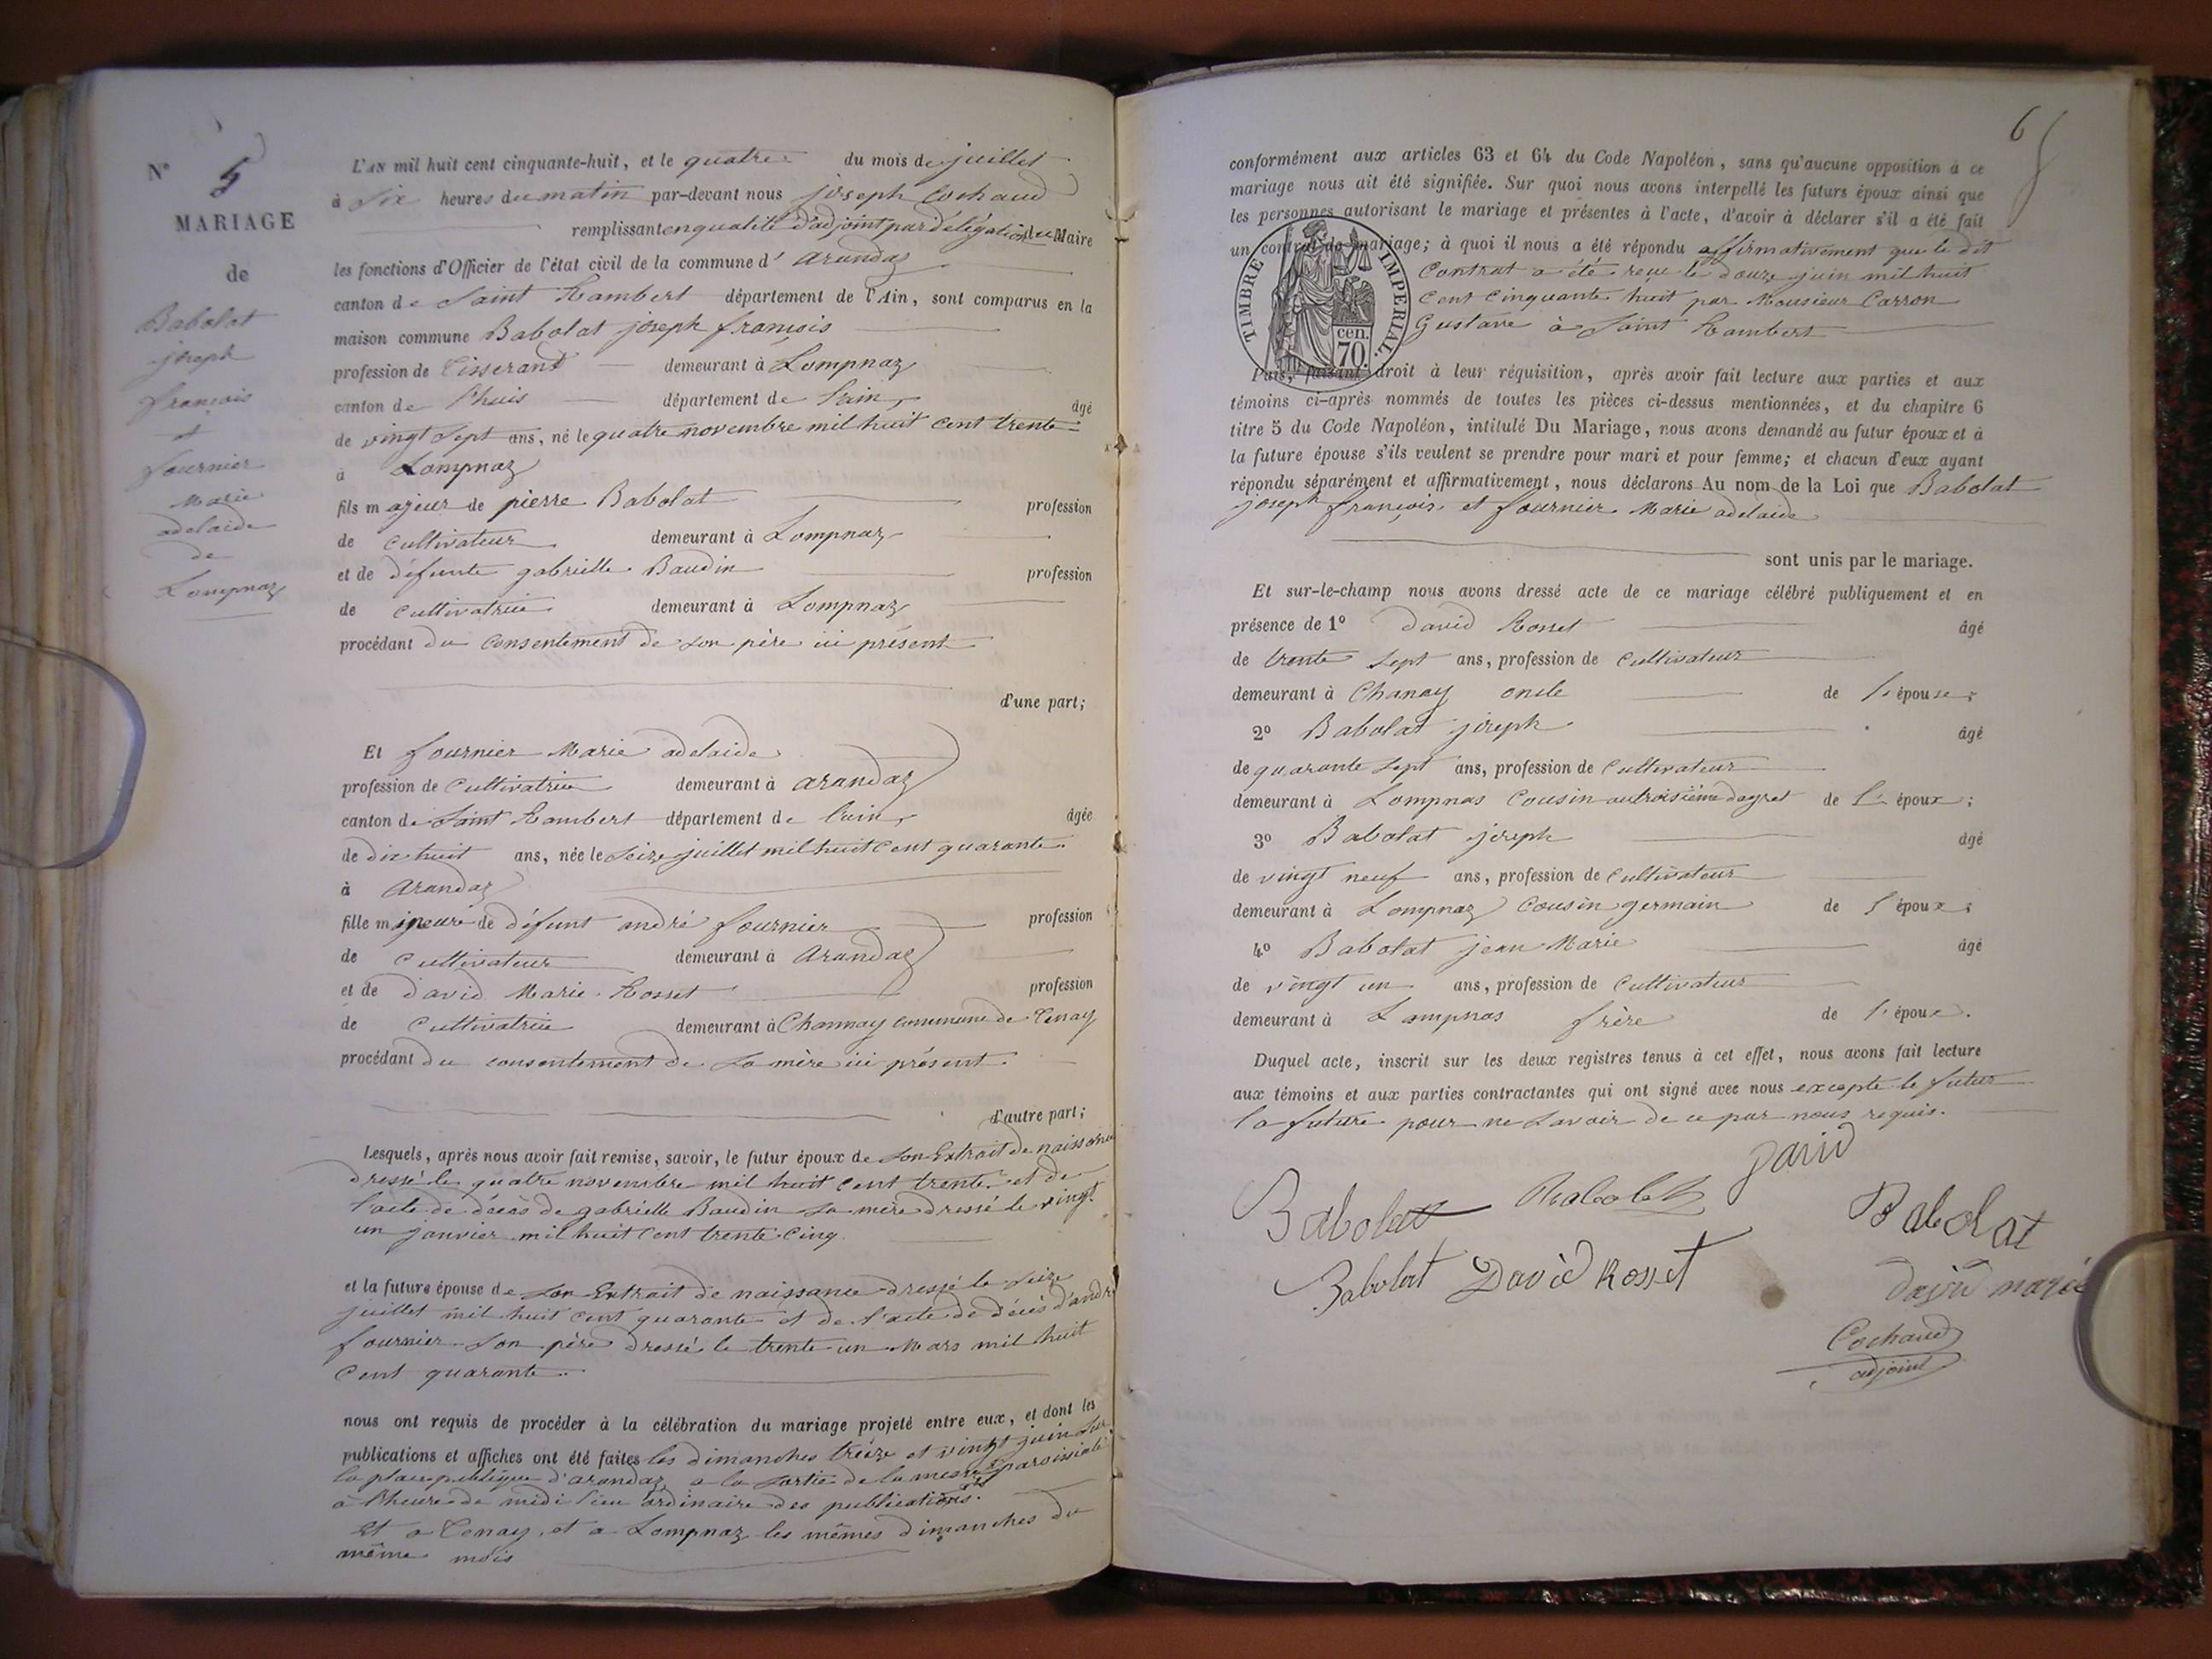 N° 5
MARIAGE
de
Babolat
joseph
françois
et
fournier
Marie
adelaide
de
Lompnaz
L'AN mil huit cent cinquante-huit, et le quatre du mois de juillet
à Six heures du matin par-devant nous joseph Cochaud
remplissant en qualité d'adjoint par délégation du Maire
les fonctions d'Officier de l'état civil de la commune d' arandaz
canton de Saint Rambert département de l'Ain, sont comparus en la
maison commune Babolat joseph françois
profession de Tisserand demeurant à Lompnaz
canton de Lhuis département de l'ain, âgé
de vingt sept ans, né le quatre novembre mil huit cent trente
à Lompnaz
fils majeur de pierre Babolat profession
de Cultivateur demeurant à Lompnaz
et de défunte gabrielle Baudin profession
de Cultivatrice demeurant à Lompnaz
procédant du consentement de son père ici présent
d'une part;
Et fournier Marie adelaide
profession de Cultivatrice demeurant à arandaz
canton de Saint Rambert département de l'ain, âgée
de dix huit ans, née le Seize juillet mil huit Cent quarante
à arandaz
fille mineure de défunt andré fournier profession
de Cultivateur demeurant à arandaz
et de david Marie Rosset profession
de Cultivatrice demeurant à Channay commune de Tenay
procédant du consentement de sa mère ici présent
d'autre part;
Lesquels, après nous avoir fait remise, savoir, le futur époux de son Extrait de naissance
dressé le quatre novembre mil huit cent trente et de
l'acte de décès de gabrielle Baudin sa mère dressé le vingt
un janvier mil huit Cent trente Cinq.
et la future épouse de son Extrait de naissance dressé le seize
juillet mil huit cent quarante et de l'acte de décès d'andré
fournier son père dressé le trente un Mars mil huit
Cent quarante
nous ont requis de procéder à la célébration du mariage projeté entre eux, et dont les
publications et affiches ont été faites les dimanches treize et vingt juin sur
la place publique d'arandaz, a la sortie de la messe paroissiale
à l'heure de midi lieu ordinaire des publications.
Et a Tenay, et a Lompnaz les mêmes dimanches du
même mois
6
conformément aux articles 63 et 64 du Code Napoléon, sans qu'aucune opposition à ce
mariage nous ait été signifiée. Sur quoi nous avons interpellé les futurs époux ainsi que
les personnes autorisant le mariage et présentes à l'acte, d'avoir à déclarer s'il a été fait
un contrat de mariage; à quoi il nous a été répondu affirmativement que le dit
Contrat a été reçu le douze juin mil huit
Cent Cinquante huit par Monsieur Carron
Gustave à Saint Rambert
TIMBRE IMPERIAL.
cen.
70.
Puis, faisant droit à leur réquisition, après avoir fait lecture aux parties et aux
témoins ci-après nommés de toutes les pièces ci-dessus mentionnées, et du chapitre 6
titre 5 du Code Napoléon, intitulé Du Mariage, nous avons demandé au futur époux et à
la future épouse s'ils veulent se prendre pour mari et pour femme; et chacun d'eux ayant
répondu séparément et affirmativement, nous déclarons Au nom de la Loi que Babolat
joseph françois et fournier Marie adelaide
sont unis par le mariage.
Et sur-le-champ nous avons dressé acte de ce mariage célébré publiquement et en
présence de 1° David Rosset âgé
de trente sept ans, profession de Cultivateur
demeurant à Chanay oncle de l'épouse;
2° Babolat joseph âgé
de quarante sept ans, profession de Cultivateur
demeurant à Lompnas Cousin au troisième degret de L' époux;
3° Babolat joseph âgé
de vingt neuf ans, profession de Cultivateur
demeurant à Lompnaz Cousin germain de l'époux;
4° Babolat jean Marie âgé
de vingt un ans, profession de Cultivateur
demeurant à Lompnas frère de l'époux.
Duquel acte, inscrit sur les deux registres tenus à cet effet, nous avons fait lecture
aux témoins et aux parties contractantes qui ont signé avec nous excepte le futur
la future pour ne savoir de ce par nous requis.
david
Babolat Babolat Babolat
Babolat David Rosset david marie
Cochaud
adjoint